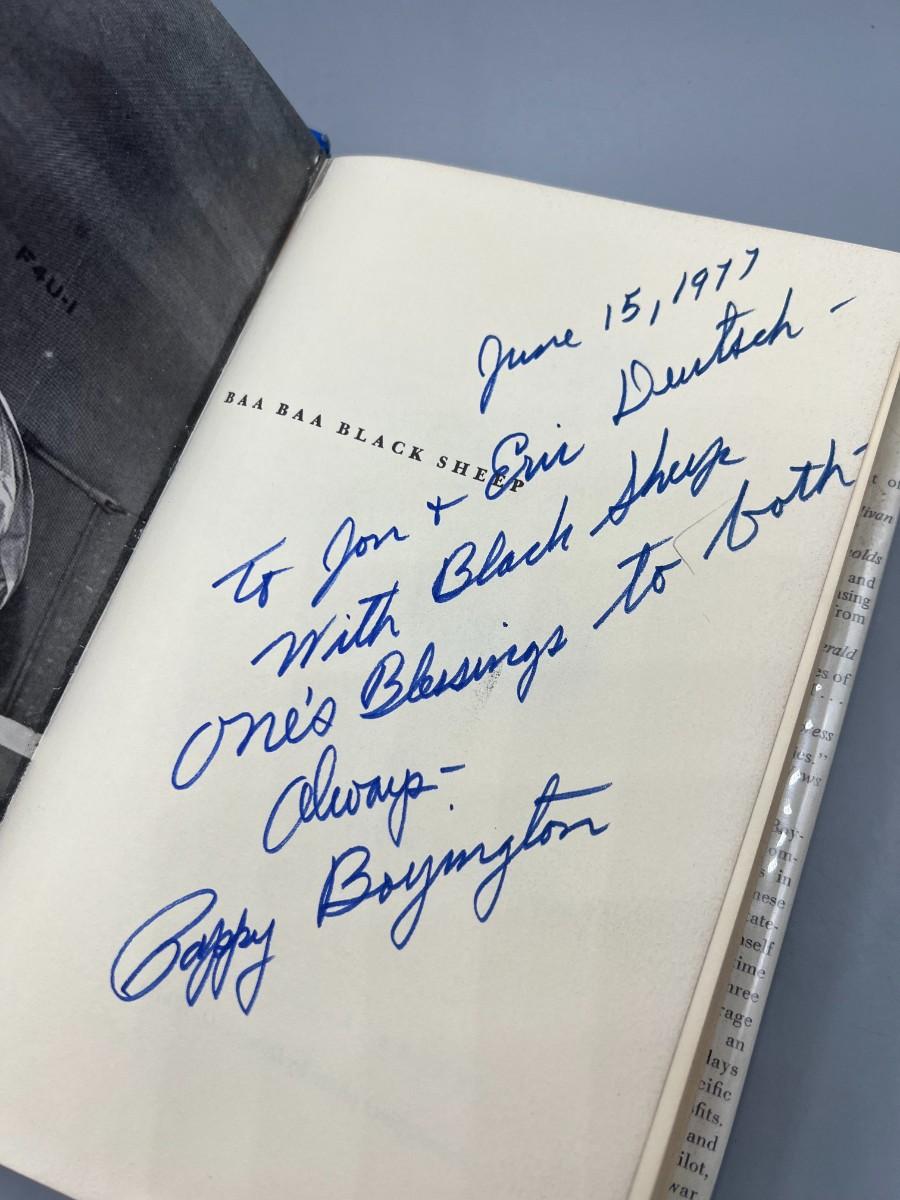 F4U-1
BAA BAA BLACK SHEEP
June 15, 1977
To Jon + Eric Deutsch -
With Black Sheep
One's Blessings to both -
Always -
Pappy Boyington
t of
livan
olds
and
sing
rom
rald
s of
...
ress
ies."
ews
Boy-
om-
s in
nese
ate-
self
time
hree
rage
an
days
cific
fits.
and
ilot,
war